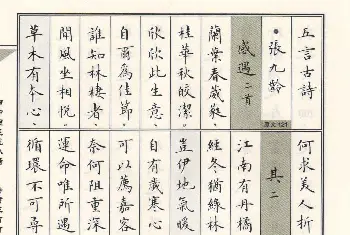 五言古詩
張九齡
感遇二首
蘭葉春葳蕤
桂華秋皎潔
欣欣此生意
自爾為佳節
誰知林棲者
聞風坐相悅
草木有本心
何求美人折
其二
江南有丹橘
經冬猶綠林
豈伊地氣暖
自有歲寒心
可以薦嘉客
奈何阻重深
運命唯所遇
循環不可尋